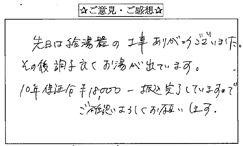 ☆ご意見・ご感想☆
先日は給湯器の工事ありがとうございました。
その後調子良くお湯が出ています。
10年保証金¥18,000ー振込完了していますので
ご確認よろしくお願いします。